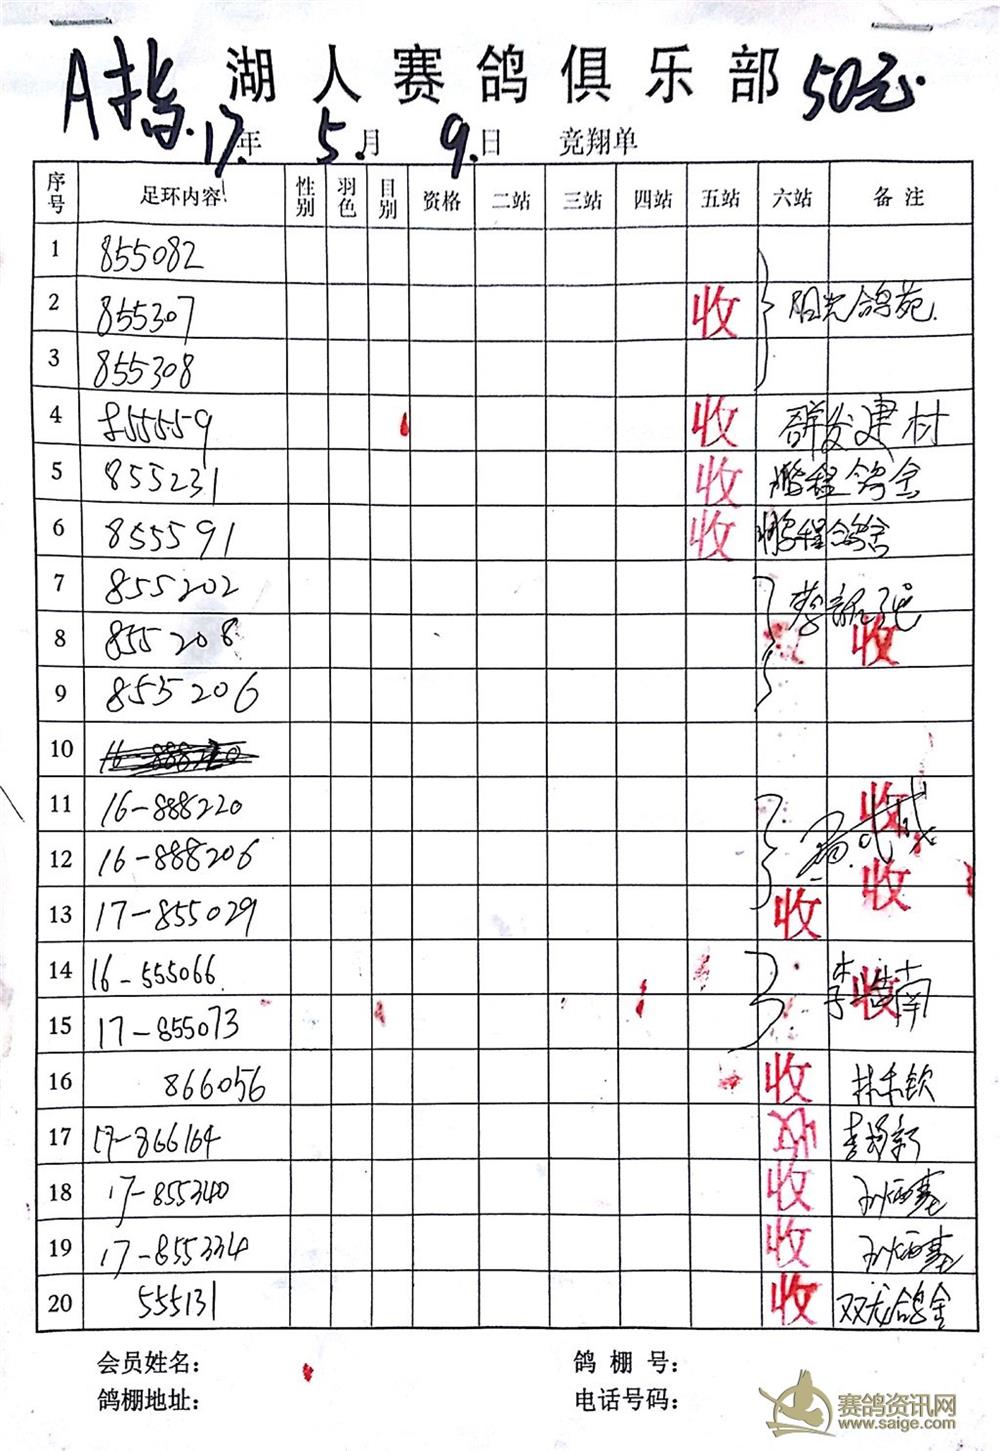 A指 湖人赛鸽俱乐部 50元
17年 5月 9日 竞翔单
序号 足环内容 性别 羽色 目别 资格 二站 三站 四站 五站 六站 备注
1 855082
2 855307 收 阳光鸽苑
3 855308
4 855559 收 群发建材
5 855231 收 鹏程鸽舍
6 855591 收 鹏程鸽舍
7 855202
8 855208 收
9 855206
10 16-888220
11 16-888220 收
12 16-888206 收
13 17-855029 收
14 16-555066 李浩南 收
15 17-855073
16 866056 收 林木钦
17 17-866164
18 17-855340 收
19 17-855334 收
20 555131 收 双龙鸽舍
会员姓名: 鸽棚号:
鸽棚地址: 电话号码:
赛鸽资讯网
www.saige.com